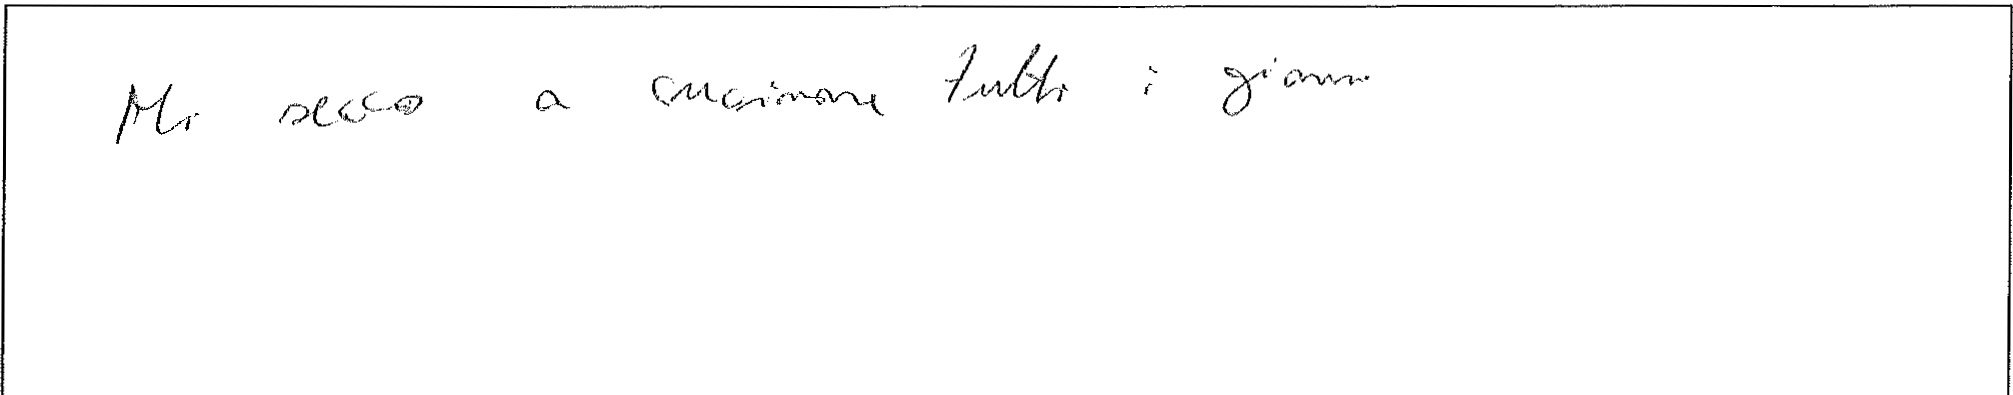 Mi secco a cucinare tutti i giorni